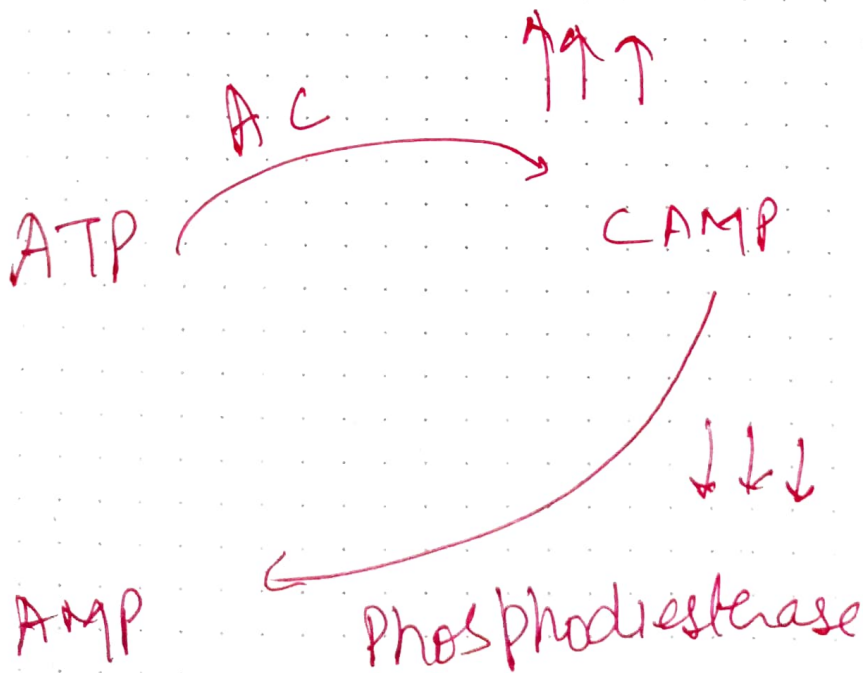 ↑↑↑
AC
ATP
CAMP
↓↓↓
AMP
Phosphodiesterase